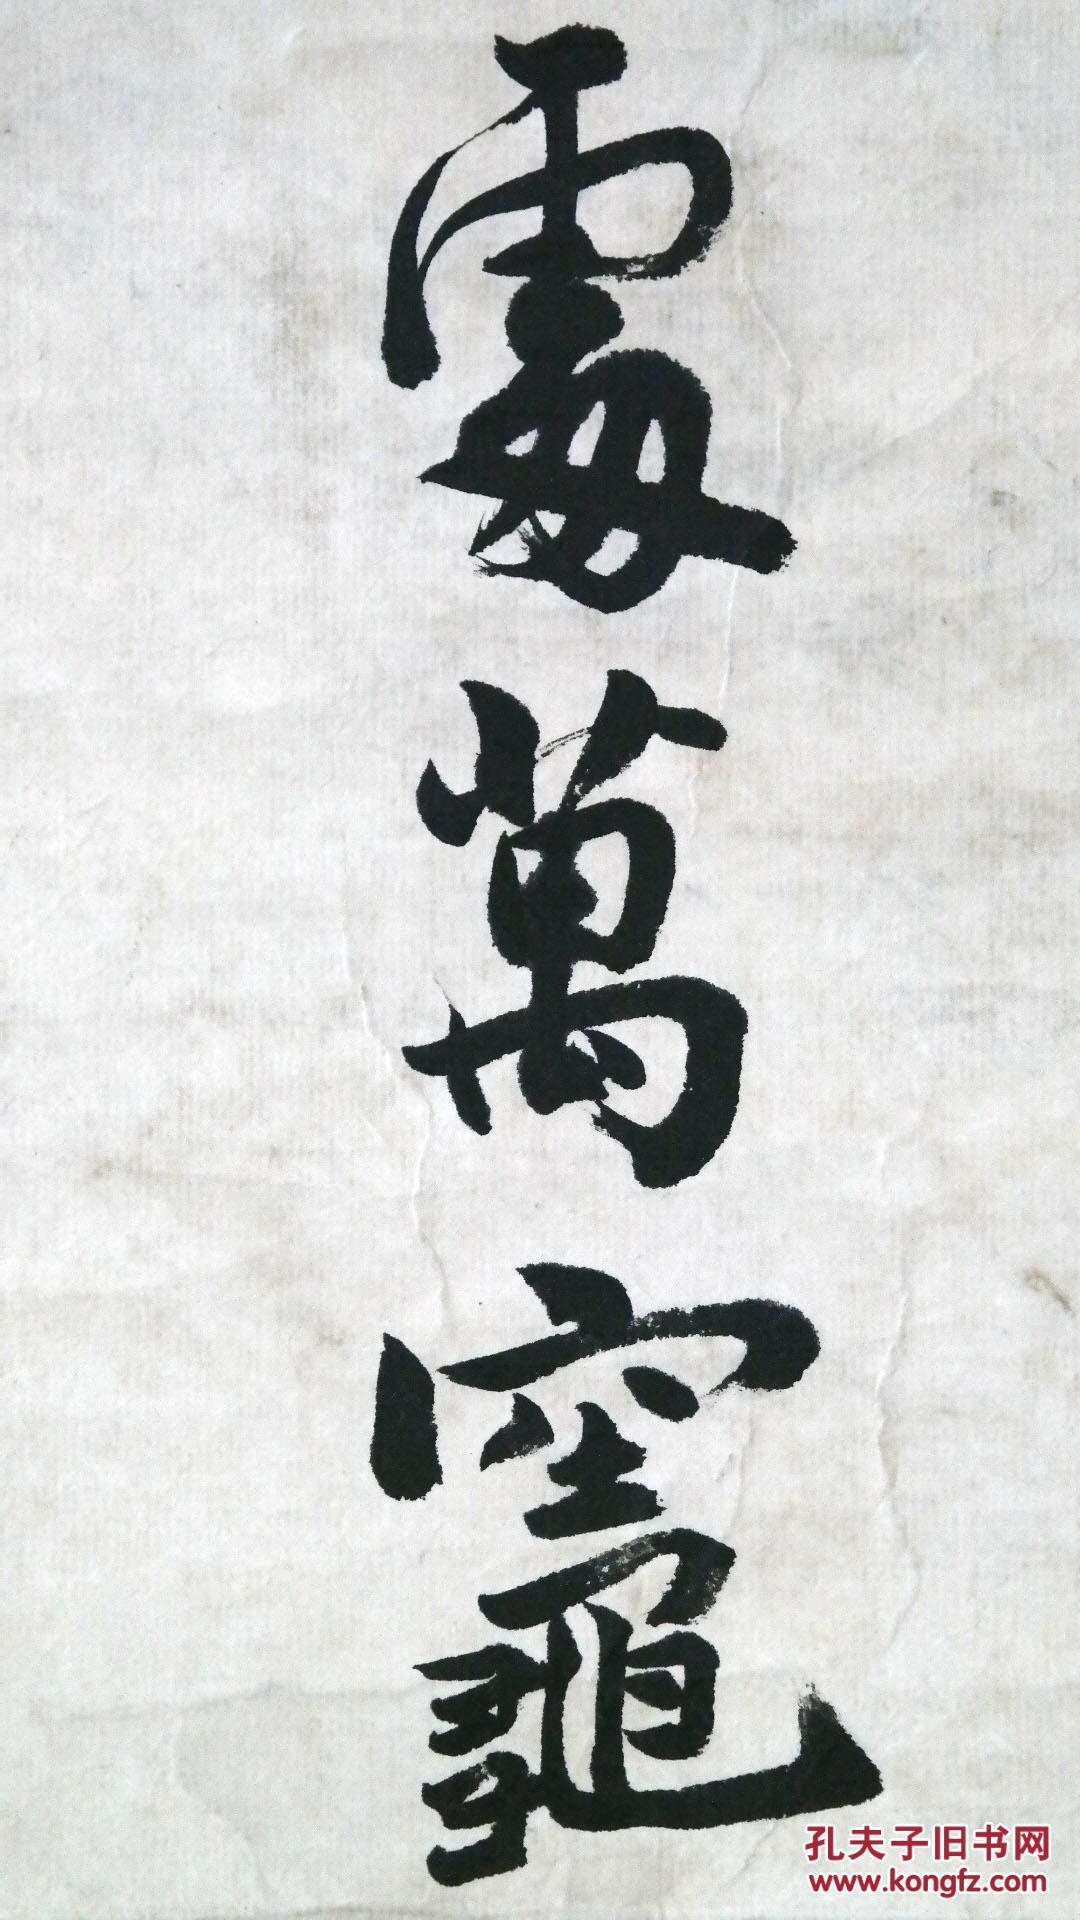 萬竈
孔夫子旧书网
www.kongfz.com